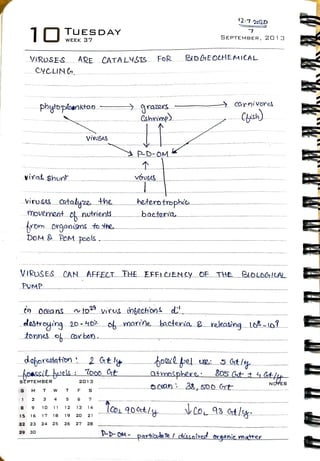 12-7-2020
10 TUESDAY
WEEK 37
7
SEPTEMBER, 2013
VIRUSES ARE CATALYSTS FOR BIOGEOCHEMICAL
CYCLING.
phytoplankton → grazers → carnivores
(shrimp) (fish)
viruses
P-D-OM
viral shunt
viruses
viruses catalyze the
movement of nutrients
from organisms to the
DOM & POM pools.
heterotrophic
bacteria
VIRUSES CAN AFFECT THE EFFICIENCY OF THE BIOLOGICAL
PUMP
in oceans ~10²⁹ virus infections d⁻¹.
destroying 20-40% of marine bacteria & releasing 10⁸-10⁹
tonnes of carbon.
deforestation : 2 Gt/y
fossil fuel use 5 Gt/y
fossil fuels : 7000 Gt
atmosphere : 805 Gt ± 4 Gt/y
ocean : 38,500 Gt
NOTES
SEPTEMBER 2013
S M T W T F S
1 2 3 4 5 6 7
8 9 10 11 12 13 14
15 16 17 18 19 20 21
22 23 24 25 26 27 28
29 30
↑CO₂ 90 Gt/y ↓CO₂ 93 Gt/y.
P-D-OM - particulate / dissolved organic matter